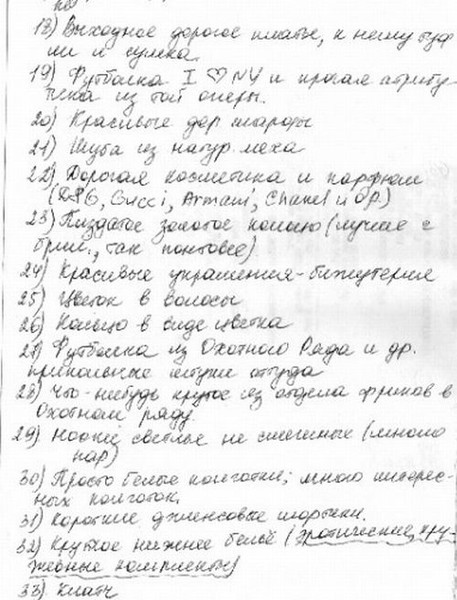 18) Выходное дорогое платье, к нему туф
ли и сумка.
19) Футболка I ♡ NY и прочая атрибу-
тика из той оперы.
20) Красивые дор. шарфы
21) Шуба из натур. меха
22) Дорогая косметика и парфюм
(D&G, Gucci, Armani, Chanel и др.)
23) Пиздатое золотое кольцо (лучше с
брил., так понтовее)
24) Красивые украшения - бижутерия
25) Цветок в волосы
26) Кольцо в виде цветка
27) Футболка из Охотного Ряда и др.
прикольные штуки оттуда
28) Что-нибудь крутое из отдела фриков в
Охотном ряду.
29) Носки светлые не смешные (много
пар)
30) Просто белые колготки; много интерес-
ных колготок.
31) Короткие джинсовые шортики.
32) Крутое нижнее бельё (эротические, кру-
жевные комплекты)
33) Клатч